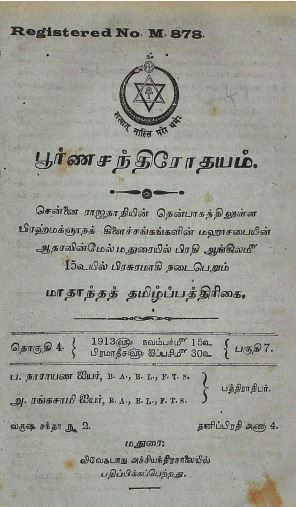 Registered No. M. 878.
பூர்ணசந்திரோதயம்.
சென்னை ராஜதாநியின் தென்பாகத்திலுள்ள
பிரஹ்மக்ஞாநக் கிளைச்சங்கங்களின் மஹாசபையின்
ஆதரவின்மேல் மதுரையில் பிரதி ஆங்கிலமீ
15௳யில் பிரசுரமாகி நடைபெறும்
மாதாந்தத் தமிழ்ப்பத்திரிகை.
தொகுதி 4. { 1913௵ நவம்பர்மீ 15௳ } பகுதி 7.
பிரமாதீச௵ ஐப்பசிமீ 30௳
ப. நாராயண ஐயர், B. A., B. L., F. T. S. } பத்திராதிபர்.
அ. ரங்கசாமி ஐயர், B. A., B. L., F. T. S.
வருஷ சந்தா ரூ 2. தனிப்பிரதி அணா 4.
மதுரை:
விவேகபாநு அச்சியந்திரசாலையில்
பதிப்பிக்கப்பெற்றது.